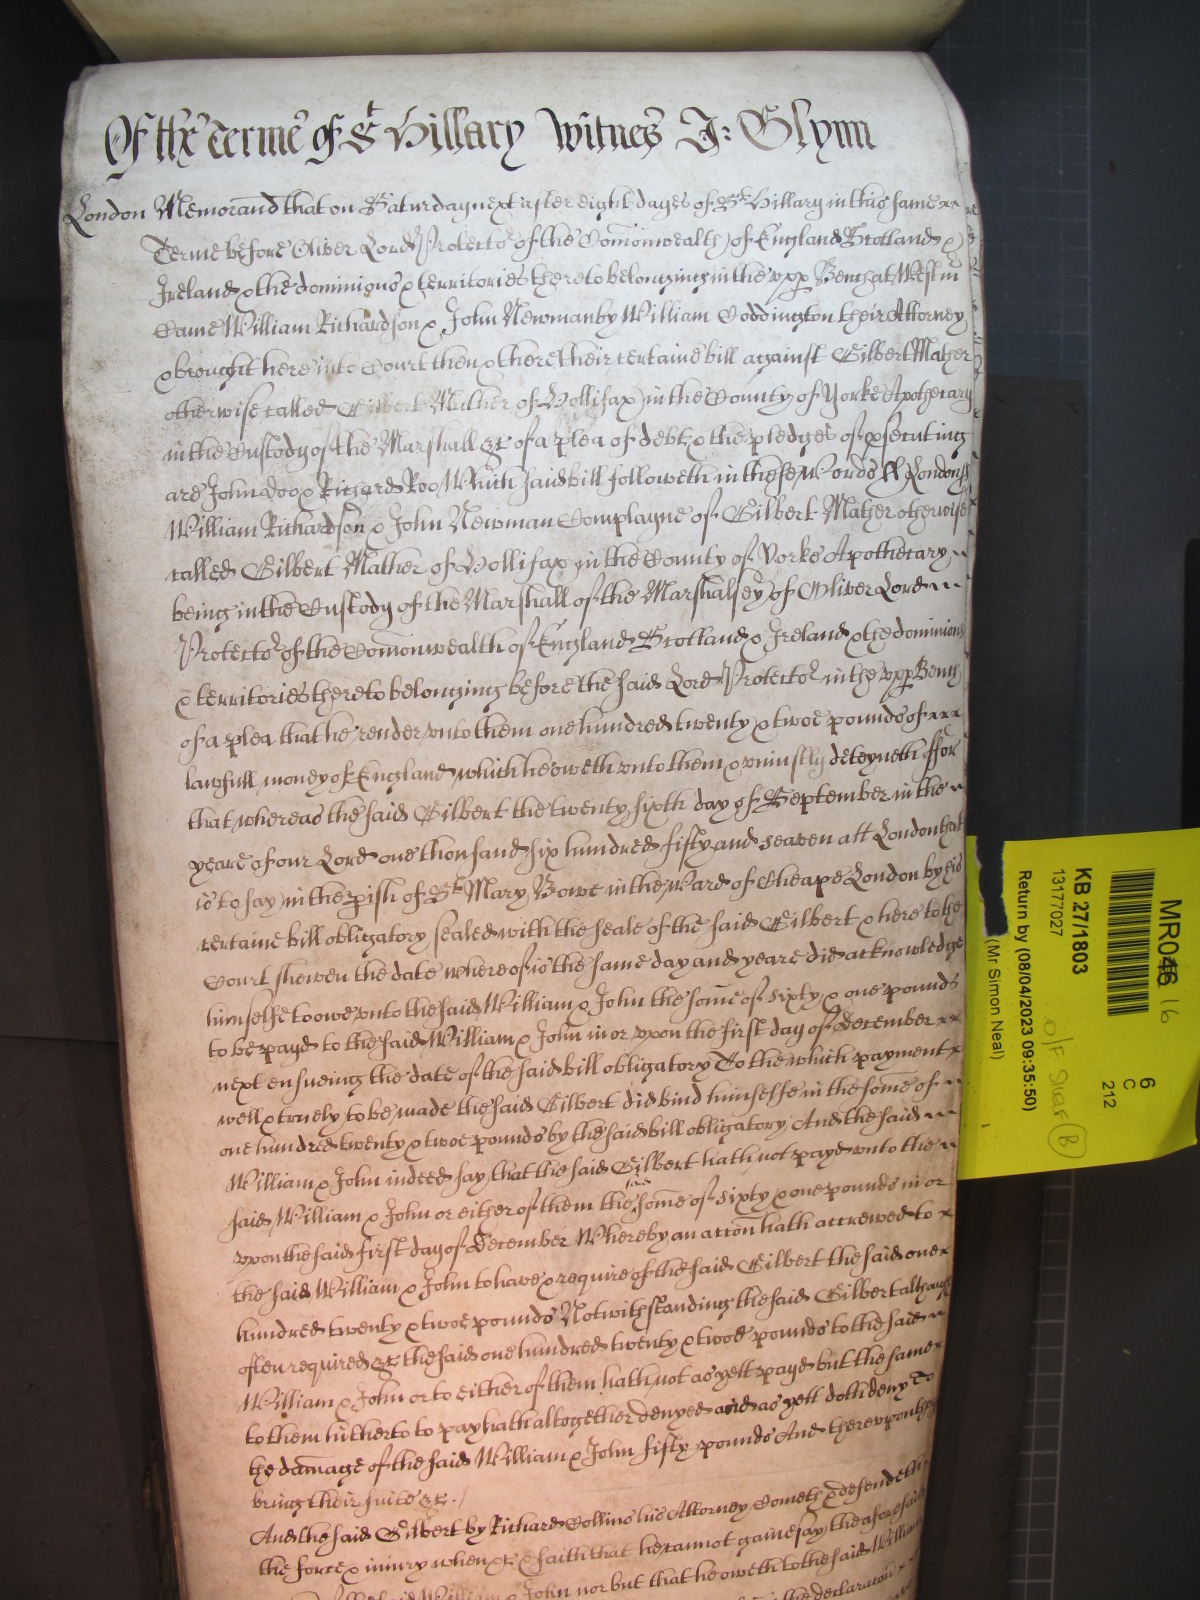 Of the Terme of St Hillary Witnes J: Glynn
London Memorand that on Saturday next after eight dayes of St Hillary in this same xx
Terme before Oliver Lord Protector of the Comonwealth of England Scotland &
Ireland & the dominions & territories thereto belonging in the upp Bench at Westm
Came William Richardson & John Newman by William Coddington their Attorney
& brought here into Court then & there their certaine bill against Gilbert Mather
otherwise called Gilbert Mather of Hollifax in the County of Yorke Apothecary
in the Custody of the Marshall &c of a plea of debt & the pledges of psecuting
are John doo & Richard Roo Which said bill followeth in these Words ss London ss
William Richardson & John Newman Complayne of Gilbert Mather otherwise
called Gilbert Mather of Hollifax in the County of Yorke Apothecary
being in the Custody of the Marshall of the Marshalsey of Oliver Lord
Protector of the Comonwealth of England Scotland & Ireland & the dominions
& territories thereto belonging before the said Lord Protector in the upp Bench
of a plea that he render unto them one hundred twenty & twoe pounds of xxx
lawfull money of England which he oweth unto them & uniustly deteyneth ffor
that whereas the said Gilbert the twenty sixth day of September in the
yeare of our Lord one thousand six hundred fifty and seaven att London that
is to say in the pish of St Mary Bowe in the Ward of Cheape London by his
certaine bill obligatory sealed with the seale of the said Gilbert & here to the
Court shewen the date whereof is the same day and yeare did acknowledge
himselfe to owe unto the said William & John the some of sixty & one pounds
to be payd to the said William & John in or upon the first day of December xx
next ensueing the date of the said bill obligatory To the which payment x
well & truely to be made the said Gilbert did bind himselfe in the some of
one hundred twenty & twoe pounds by the said bill obligatory And the said
William & John indeed say that the said Gilbert hath not payd unto the
said William & John or either of them the said some of sixty & one pounds in or
upon the said first day of December Whereby an accon hath accrewed to x
the said William & John to have & require of the said Gilbert the said one x
hundred twenty & twoe pounds Notwithstanding the said Gilbert although
often required &c the said one hundred twenty & twoe pounds to the said
William & John or to either of them hath not as yett payd but the same x
to them hitherto to pay hath altogether denyed and as yett doth deny To
the damage of the said William & John fifty pounds And thereupon they
bring their suite &c.
And the said Gilbert by Richard Collins his Attorney Cometh & defendeth
the force & iniury when &c & saith that he cannot gainesay the aforesaid
John nor but that he oweth to the said William
the declaracon
MR046 16
KB 27/1803
13177027
Return by (08/04/2023 09:35:50)
(Mr Simon Neal)
6
C
212
B